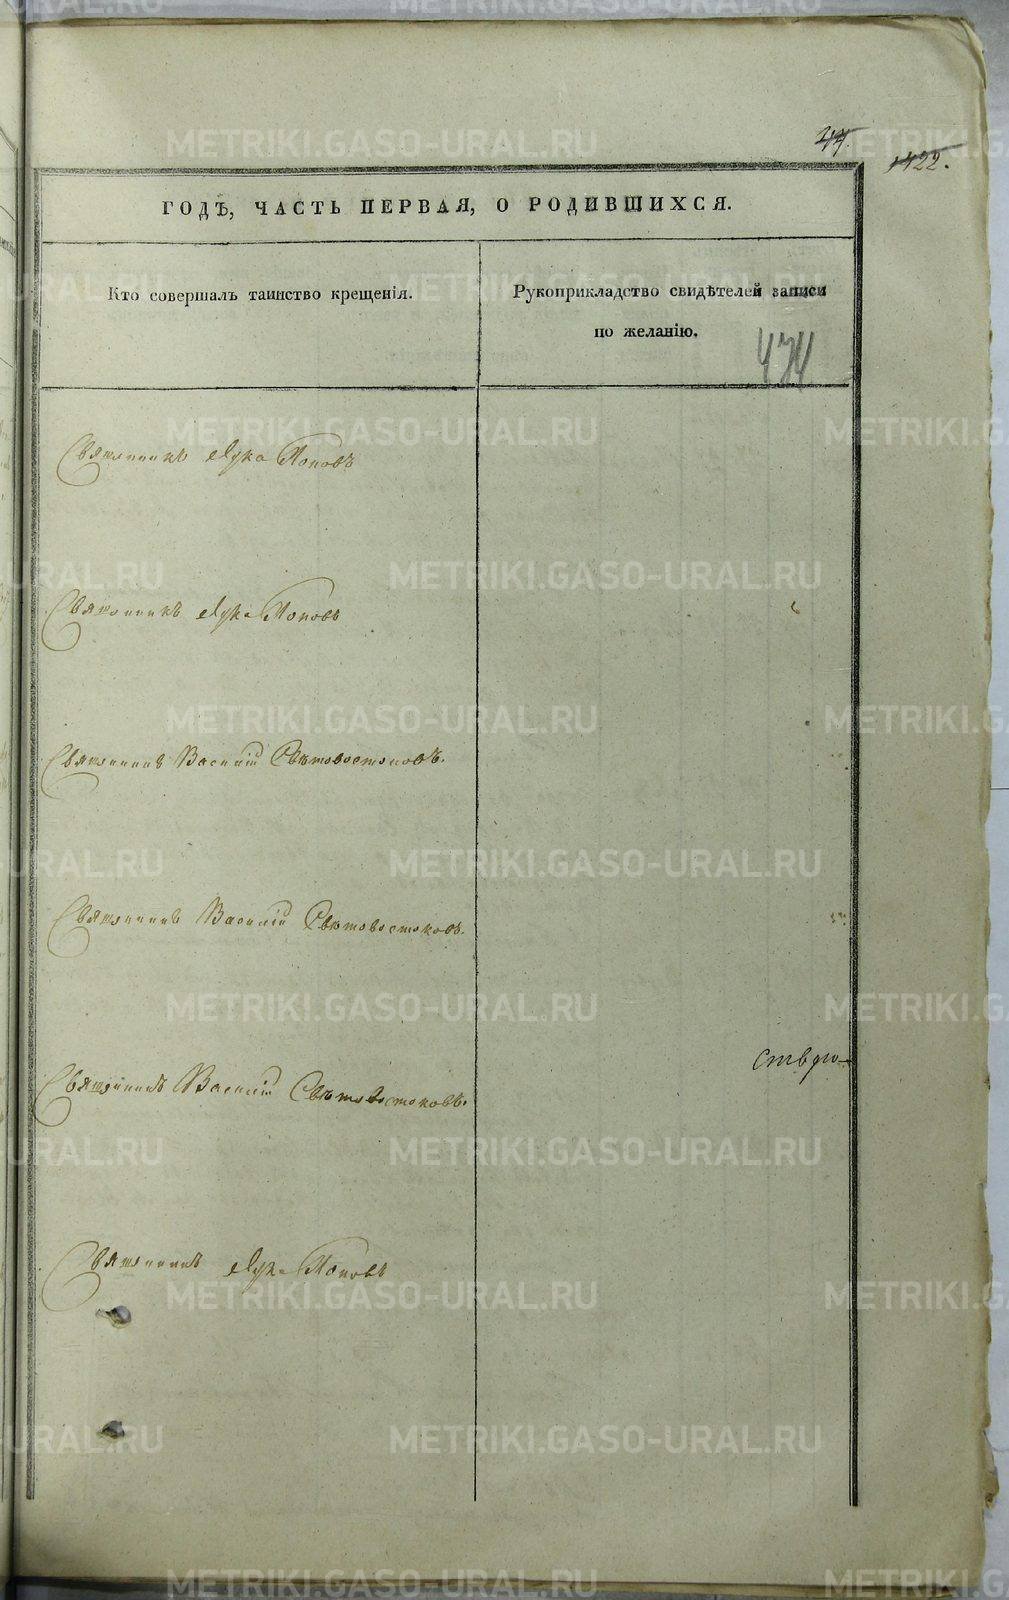 47.
1422.
ГОДЪ, ЧАСТЬ ПЕРВАЯ, О РОДИВШИХСЯ.
Кто совершалъ таинство крещенія.
Рукоприкладство свидѣтелей записи
по желанію.
474
Священникъ Лука Поповъ
Священникъ Лука Поповъ
Священникъ Василій Свѣтовостоковъ.
Священникъ Василій Свѣтовостоковъ.
Священникъ Василій Свѣтовостоковъ.
Священникъ Лука Поповъ
METRIKI.GASO-URAL.RU